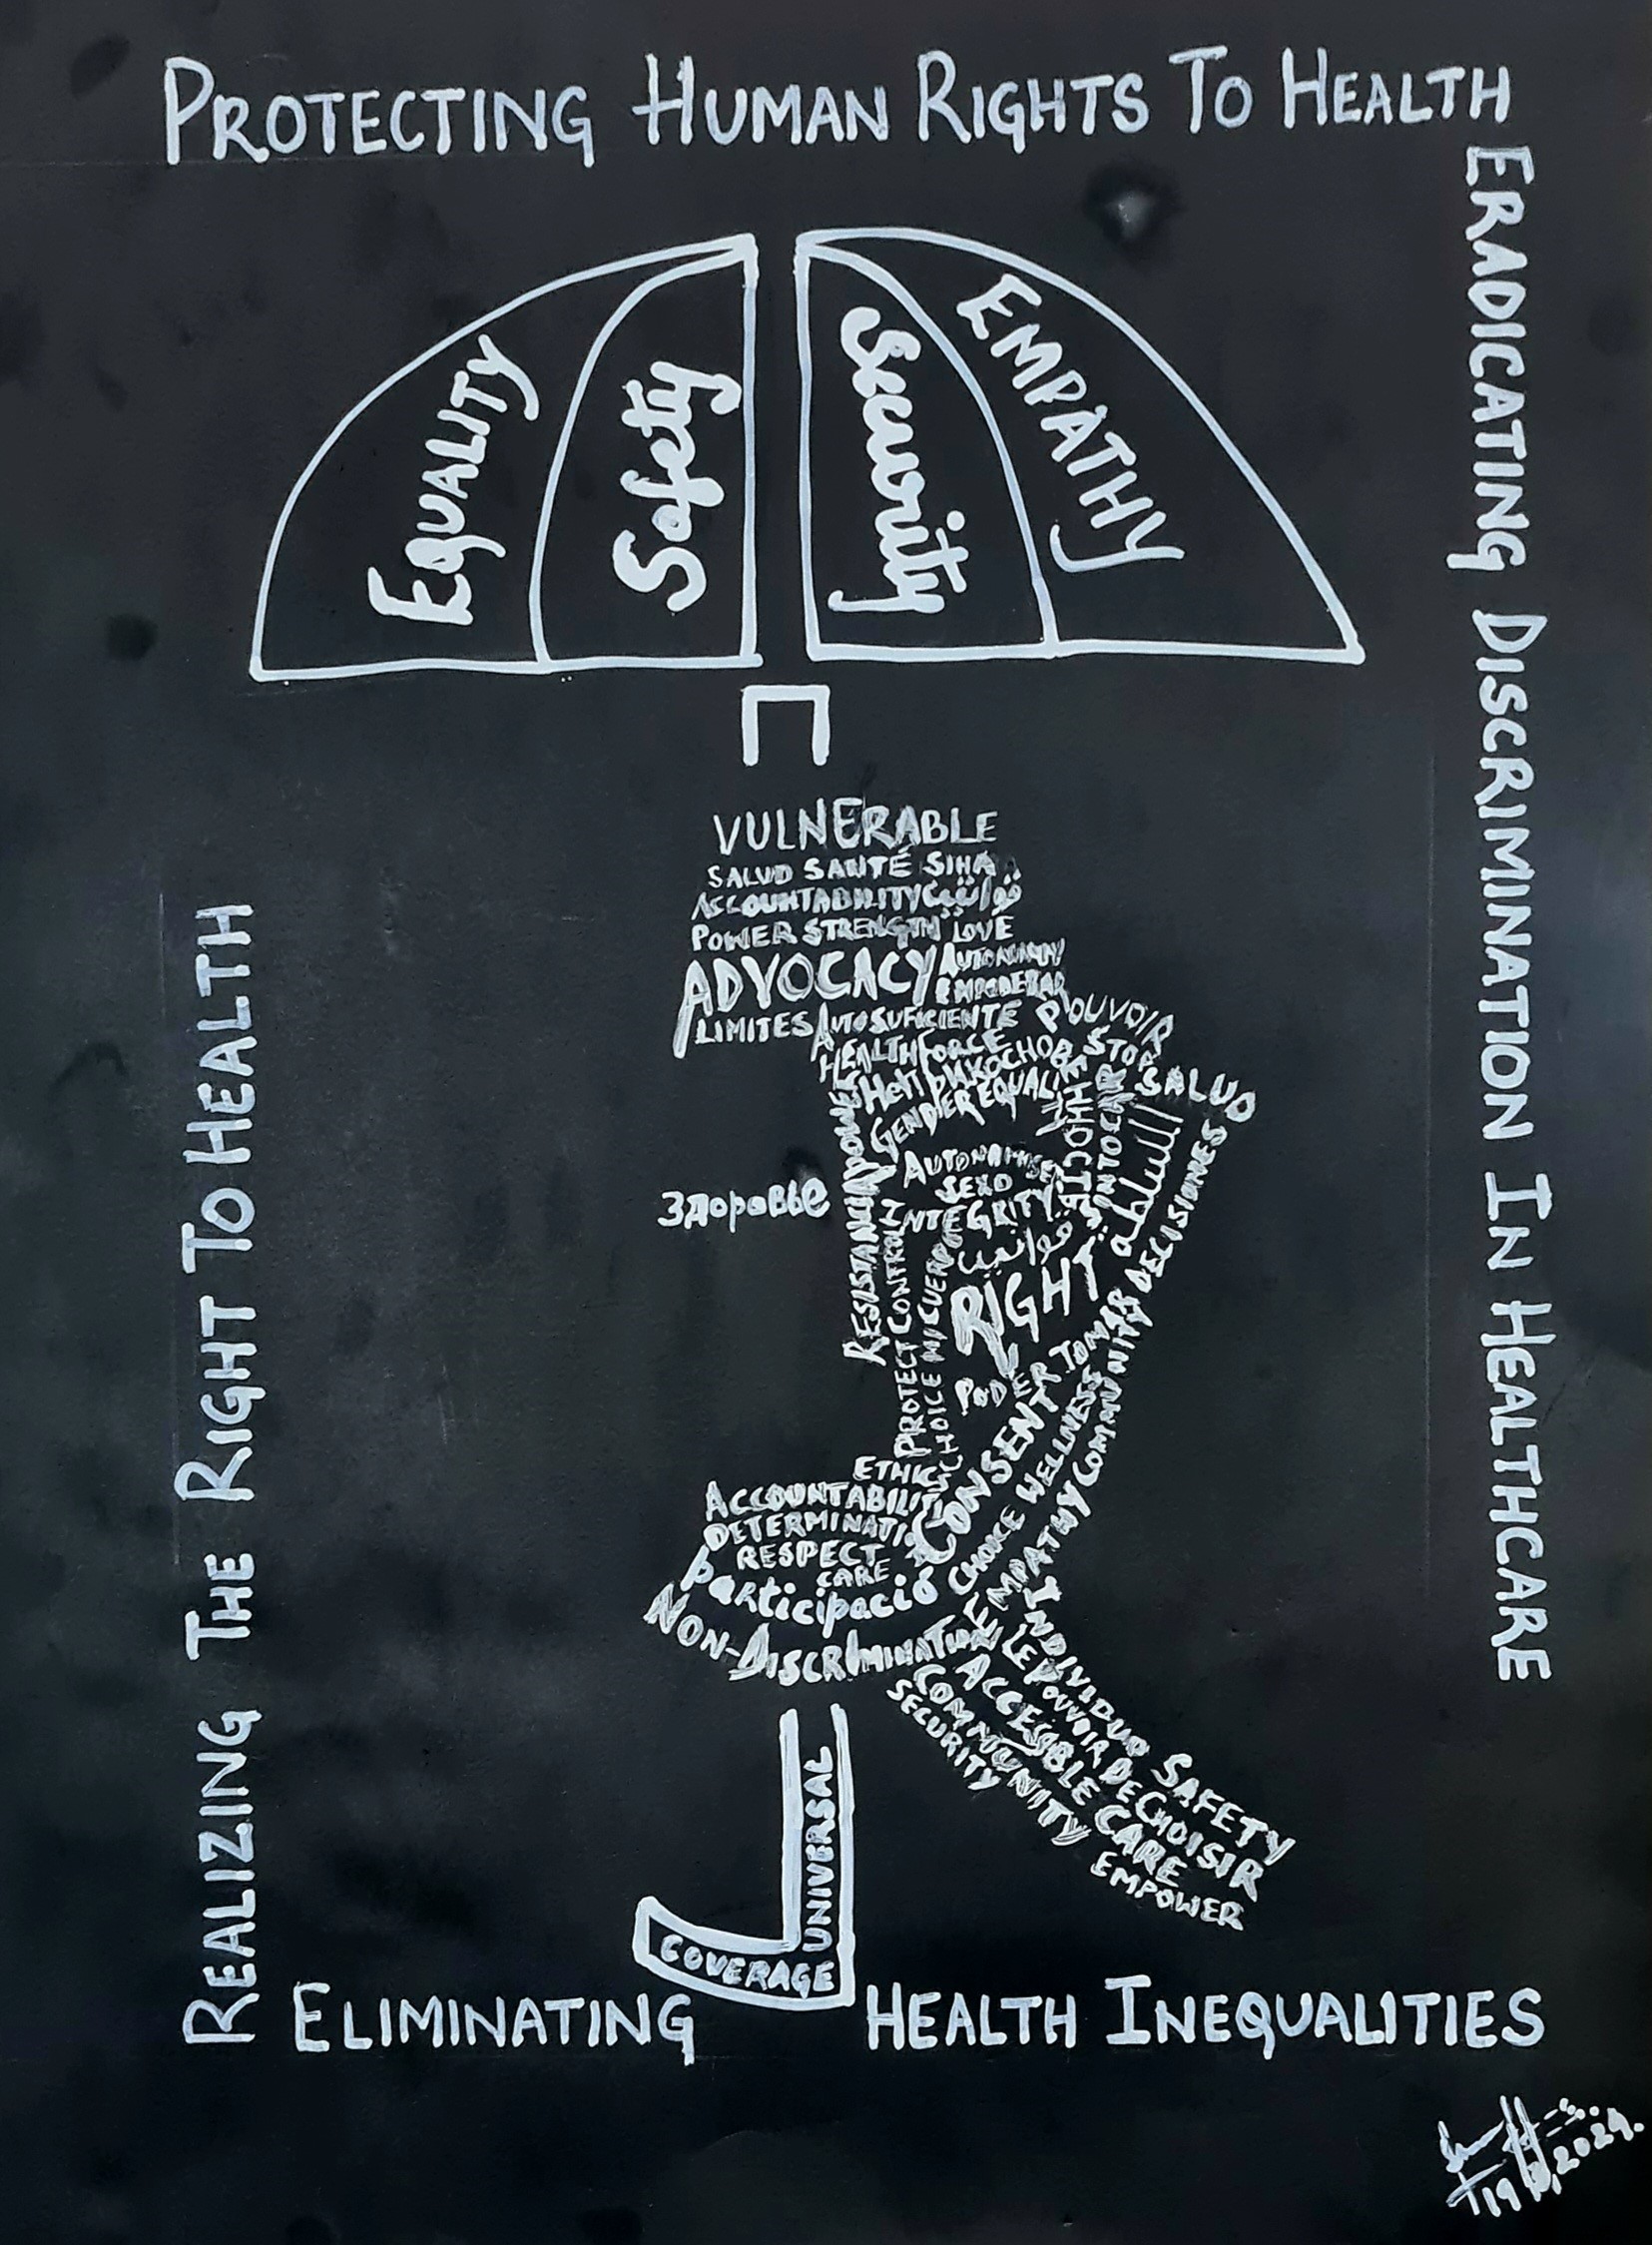 PROTECTING HUMAN RIGHTS TO HEALTH
ERADICATING DISCRIMINATION IN HEALTHCARE
REALIZING THE RIGHT TO HEALTH
ELIMINATING HEALTH INEQUALITIES
EQUALITY
Safety
Security
EMPATHY
VULNERABLE
SALUD SANTÉ SIHA
ACCOUNTABILITY
POWER STRENGTH LOVE
ADVOCACY
AUTONOMY
LIMITES AUTOSUFICIENTE POUVOIR
HEALTH FORCE
STOP
SALUD
GENDER EQUALITY
السلطة
DECISIONES
здоровье
SEXO
INTEGRITY
قوانين
RIGHT
CONTROL
PROTECT
CHOICE MI CUERPO
PODER
CONSENT
TOMAR
CHOICE WELLNESS
EMPATHY COMMUNITY
ETHICS
ACCOUNTABILITY
DETERMINATIO
RESPECT
CARE
participació
NON-DISCRIMINATION
INDIVIDUO SAFETY
LE POUVOIR DE CHOISIR
ACCESSIBLE CARE
COMMUNITY EMPOWER
SECURITY
UNIVERSAL
COVERAGE